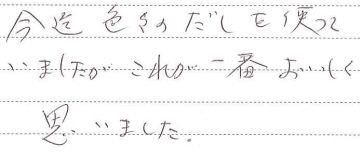 今迄色々のだしを使って
いましたが これが一番おいしく
思いました。